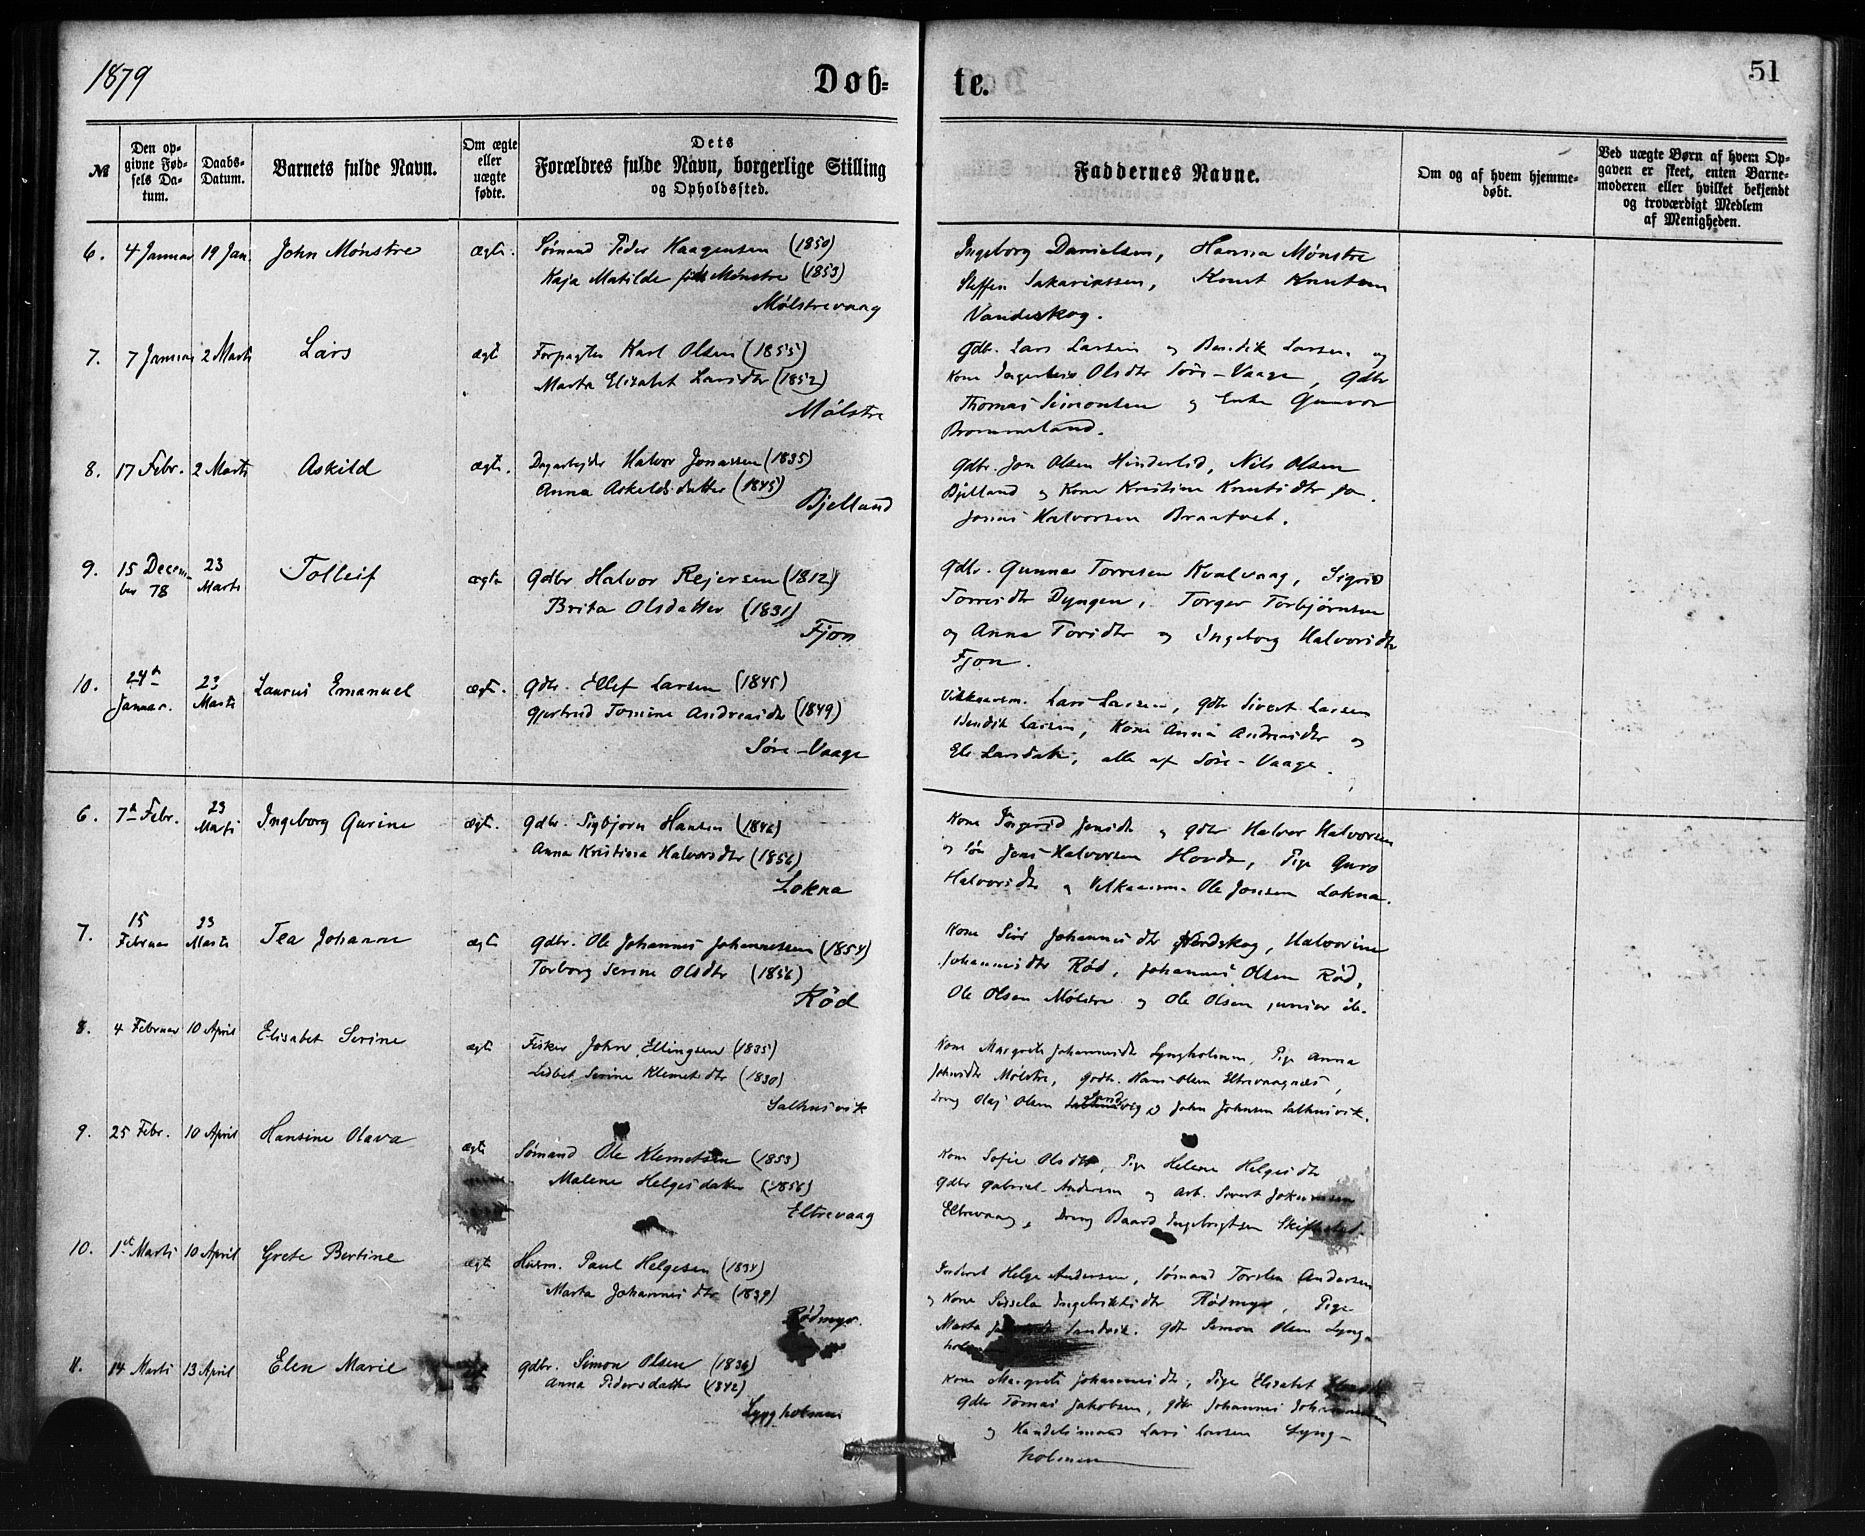 1879
Døb=
te.
51
№
Den op-
givne Fød-
sels Da-
tum.
Daabs-
Datum.
Barnets fulde Navn.
Om ægte
eller
uægte
fødte.
Dets
Forældres fulde Navn, borgerlige Stilling
og Opholdssted.
Faddernes Navne.
Om og af hvem hjemme-
døbt.
Ved uægte Børn af hvem Op-
gaven er skeet, enten Barne-
moderen eller hvilket bekjendt
og troværdigt Medlem
af Menigheden.
6. 4 Januar 19 Jan. John Mønstre ægte. Sømand Peder Haagensen (1850)
Kaja Matilde Mønstre (1853)
Mølstrevaag
Ingeborg Danielsen, Hanna Mønstre
Steffen Sakariassen, Knut Knutsen
Vandeskog.
7. 7 Januar 2 Marts Lars ægt Forpagter Karl Olsen (1855)
Marta Elisabet Larsdtr (1852)
Mølstre
Gdbr. Lars Larsen og Bendik Larsen og
Kone Olsdtr Søre-Vaage, Gdbr
Thomas Simonsen og Enke Gunvor
Brommeland.
8. 17 Febr. 2 Marts Askild ægte. Dagarbejder Halvor Jonassen (1835)
Anna Askeldsdatter (1845)
Bjelland
Gdbr. Jon Olsen Hinderlid, Nils Olsen
Bjelland og Kone Kristine Knutsdtr
Jonas Halvorsen Braatvet.
9. 15 Decem-
ber 78 23
Marts Tolleif ægte Gdbr Halvor Rejersen (1812)
Brita Olsdatter (1831)
Fjon
Gdbr. Gunnar Torresen Kvalvaag, Sigrid
Torresdtr Dyngen, Torger Torbjørnsen
og Anna Torisdtr og Ingeborg Halvorsdtr
Fjon.
10. 24de
Januar. 23
Marts Laurits Emanuel ægt. Gdbr. Ellef Larsen (1845)
Gjertrud Tomine Andreasdtr (1849)
Søre-Vaage
Lars Larsen, Gdbr Sivert Larsen
Bendik Larsen, Kone Anna Andreasdtr og
Larsdatter, alle af Søre-Vaage.
6. 7de Febr. 23
Marts Ingeborg Gurine ægt. Gdbr. Sigbjørn Hansen (1846)
Anna Kristina Halvorsdtr (1856)
Lokna
Kone Jensdtr og Gdbr Halvor Halvorsen
og Søn Jens Halvorsen Hovda, Pige Guro
Halvorsdtr og Ole Jonsen Lokna.
7. 15
Februar 23
Marts Tea Johanne ægte Gdbr. Ole Johannes Johannessen (1854)
Torborg Serine Olsdtr (1856)
Rød
Kone Siri Johannesdtr Nordskog, Halvorine
Johannesdtr Rød, Johannes Olsen Rød,
Ole Olsen Mølstre og Ole Olsen junior
8. 4 Februar 10 April Elisabet Serine ægte Fisker John Ellingsen (1835)
Lisbet Serine Klemetsdtr (1830)
Salhusvik
Kone Margrete Johannesdtr Lyngholmen, Pige Anna
Johnsdtr Mølstre, Gdbr. Hans Olsen Eltrevaagnæs,
Dreng Olaj Olsen og John Johnsen Salhusvik.
9. 25 Febr. 10 April Hansine Olava ægte Sømand Ole Klemetsen (1853)
Malene Helgesdatter (1856)
Eltrevaag
Kone Sofie Olsdtr, Pige Helene Helgesdtr
Gdbr Gabriel Andersen og Arb. Sivert
Eltrevaag, Dreng Baard Ingebrigtsen
10. 1ste Marts 10 April Grete Bertine ægte Husm. Paul Helgesen (1834)
Marta Johannesdtr (1839)
Rødmyr.
Inderst Helge Andersen, Sømand Torsten Andersen
og Kone Sissela Ingebriktsdtr Rødmyr, Pige
Marta Sandvik. Gdbr Simon Olsen Lyng-
holmen
11. 14 Marts 13 April Elen Marie Gdbr. Simon Olsen (1836)
Anna Pedersdatter (1842)
Lyngholmen
Kone Margrete Johannesdtr, Pige Elisabet
Gdbr Tomas Jakobsen, Gdbr Johannes
og Handelsmand Lars Larsen Lyng-
holmen